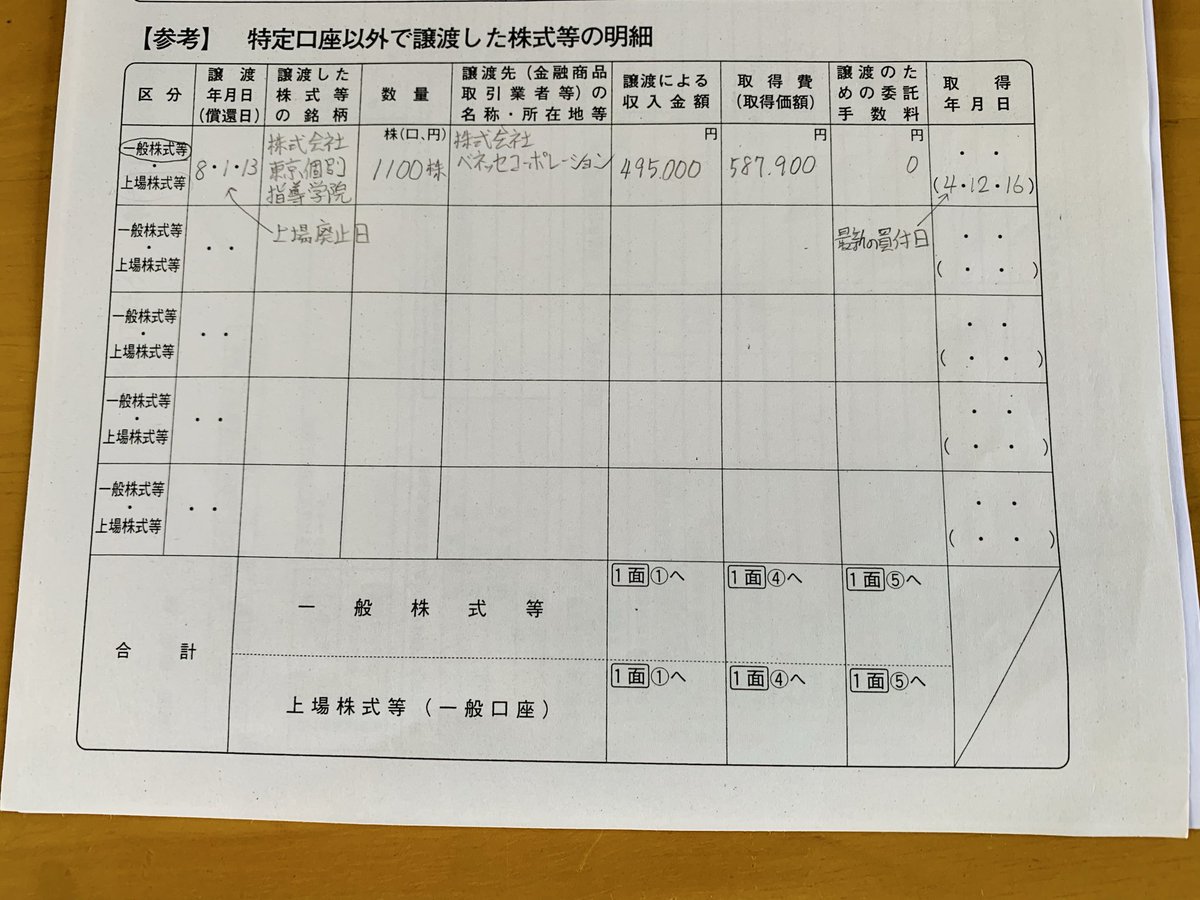 【参考】 特定口座以外で譲渡した株式等の明細
区分
譲渡
年月日
(償還日)
譲渡した
株式等
の銘柄
数量
譲渡先(金融商品
取引業者等)の
名称・所在地等
譲渡による
収入金額
取得費
(取得価額)
譲渡のた
めの委託
手数料
取得
年月日
一般株式等
・
上場株式等
8・1・13
株式会社
東京個別
指導学院
株(口、円)
1100株
株式会社
ベネッセコーポレーション
円
495.000
円
587.900
円
0
・ ・
(4・12・16)
一般株式等
・
上場株式等
・ ・
上場廃止日
最新の買付日
・ ・
( ・ ・ )
一般株式等
・
上場株式等
・ ・
・ ・
( ・ ・ )
一般株式等
・
上場株式等
・ ・
・ ・
( ・ ・ )
一般株式等
・
上場株式等
・ ・
・ ・
( ・ ・ )
合計
一般株式等
1面①へ
1面④へ
1面⑤へ
上場株式等(一般口座)
1面①へ
1面④へ
1面⑤へ